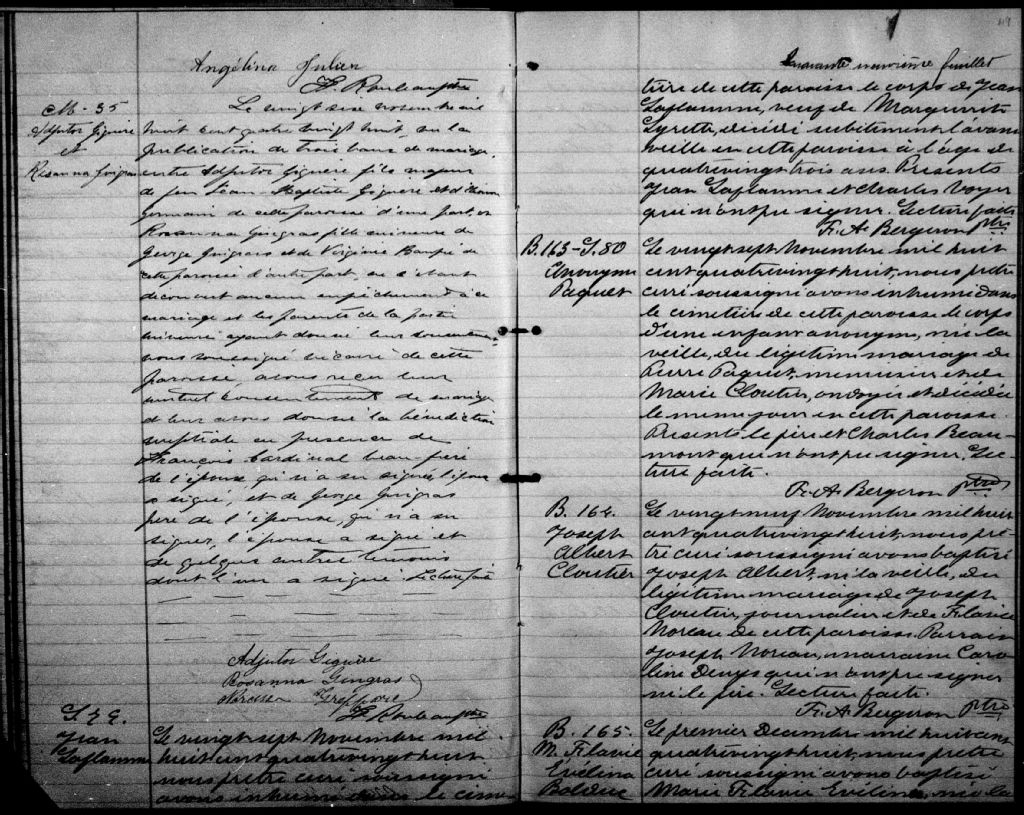 Angélina Julien
F. Rouleau ptre
M-35
Adjutor Giguère
et
Rosanna Gingras
Le vingt six novembre mil
huit cent quatre vingt huit, vu la
publication de trois bans de mariage
entre Adjutor Giguère fils majeur
de feu Jean-Baptiste Giguère et d'
Germain de cette paroisse d'une part, et
Rosanna Gingras fille mineure de
George Gingras et de Virginie
cette paroisse d'autre part, ne s'étant
découvert aucun empêchement à ce
mariage et les parents de la partie
mineure ayant donné leur consentement,
nous soussigné vicaire de cette
paroisse, avons reçu leur
mutuel consentement de mariage
et leur avons donné la bénédiction
nuptiale en présence de
François Cardinal beau-père
de l'époux qui n'a su signer, l'époux
a signé, et de George Gingras
père de l'épouse, qui n'a su
signer, l'épouse a signé et
de quelques autres témoins
dont l'un a signé. Lecture faite
Adjutor Giguère
Rosanna Gingras
Narcisse
F. Rouleau ptre
Jean
Laflamme
Le vingt sept Novembre mil
huit cent quatrevingt huit
nous prêtre curé soussigné
avons inhumé dans le cime
49
Quarante neuvième feuillet
tière de cette paroisse le corps de Jean
Laflamme, veuf de Marguerite
Lyrette, décédé subitement l'avant
veille en cette paroisse à l'âge de
quatrevingt trois ans. Présents
Jean Laflamme et Charles Voyer
qui n'ont pu signer. Lecture faite
F.-A. Bergeron ptre
B. 163-S. 80
Anonyme
Paquet
Le vingt sept Novembre mil huit
cent quatrevingt huit, nous prêtre
curé soussigné avons inhumé dans
le cimetière de cette paroisse le corps
d'une enfant anonyme, née la
veille, du légitime mariage de
Pierre Paquet, menuisier et de
Marie Cloutier, ondoyée et décédée
le même jour en cette paroisse.
Présents le père et Charles Beau-
mont qui n'ont pu signer. Lec-
ture faite.
F.-A. Bergeron ptre
B. 164.
Joseph
Albert
Cloutier
Le vingt neuf Novembre mil huit
cent quatrevingt huit, nous prê-
tre curé soussigné avons baptisé
Joseph Albert, né la veille, du
légitime mariage de Joseph
Cloutier, journalier et de Flavie
Moreau de cette paroisse. Parrain
Joseph Moreau, marraine Caro-
line Denys qui n'ont pu signer
ni le père. Lecture faite.
F.-A. Bergeron ptre
B. 165.
M. Flavie
Evélina
Bolduc
Le premier Decembre mil huit cent
quatrevingt huit, nous prêtre
curé soussigné avons baptisé
Marie Flavie Evélina, née la